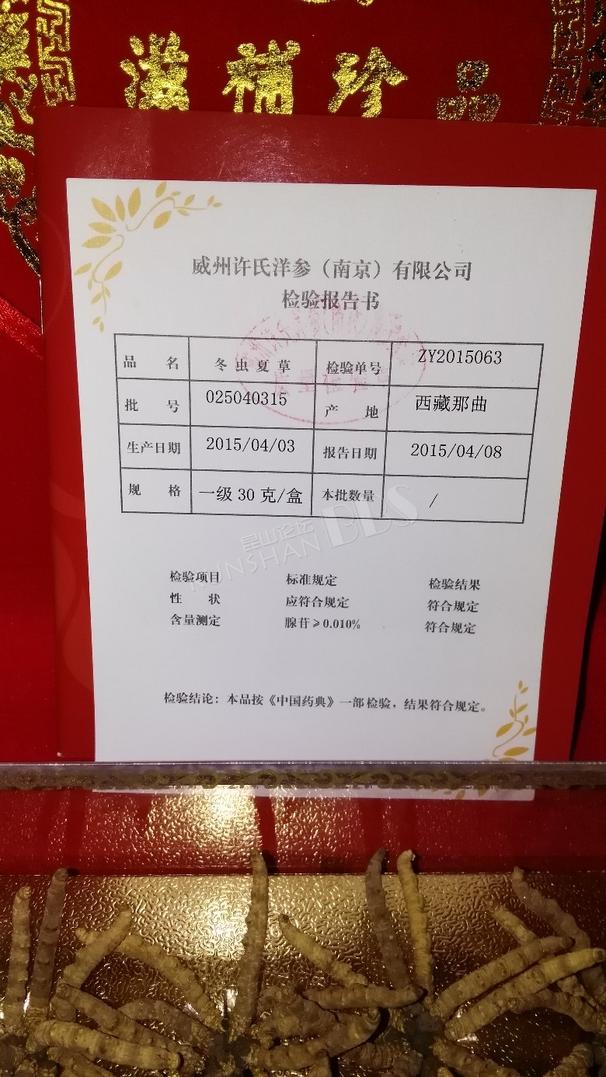 滋補珍品
威州许氏洋参（南京）有限公司
检验报告书
品 名 冬虫夏草 检验单号 ZY2015063
批 号 025040315 产 地 西藏那曲
生产日期 2015/04/03 报告日期 2015/04/08
规 格 一级30克/盒 本批数量 /
昆山论坛
KUNSHAN BBS
检验项目 标准规定 检验结果
性 状 应符合规定 符合规定
含量测定 腺苷≥0.010% 符合规定
检验结论：本品按《中国药典》一部检验，结果符合规定。